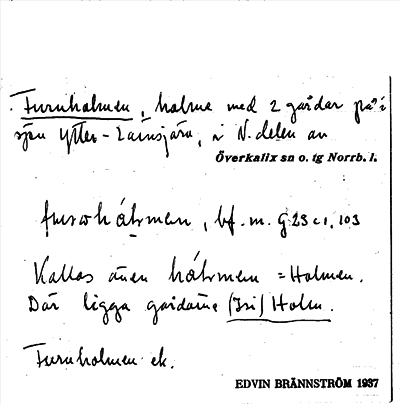 Furuholmen, holme med 2 gårdar på i
sjön Ytter-Lainsjärv, i N. delen av
Överkalix sn o. tg Norrb. l.
bf. m. G23 c1, 103
Kallas även = Holmen.
Där ligga gårdarne (Fri) Holm.
Furuholmen ek.
EDVIN BRÄNNSTRÖM 1937